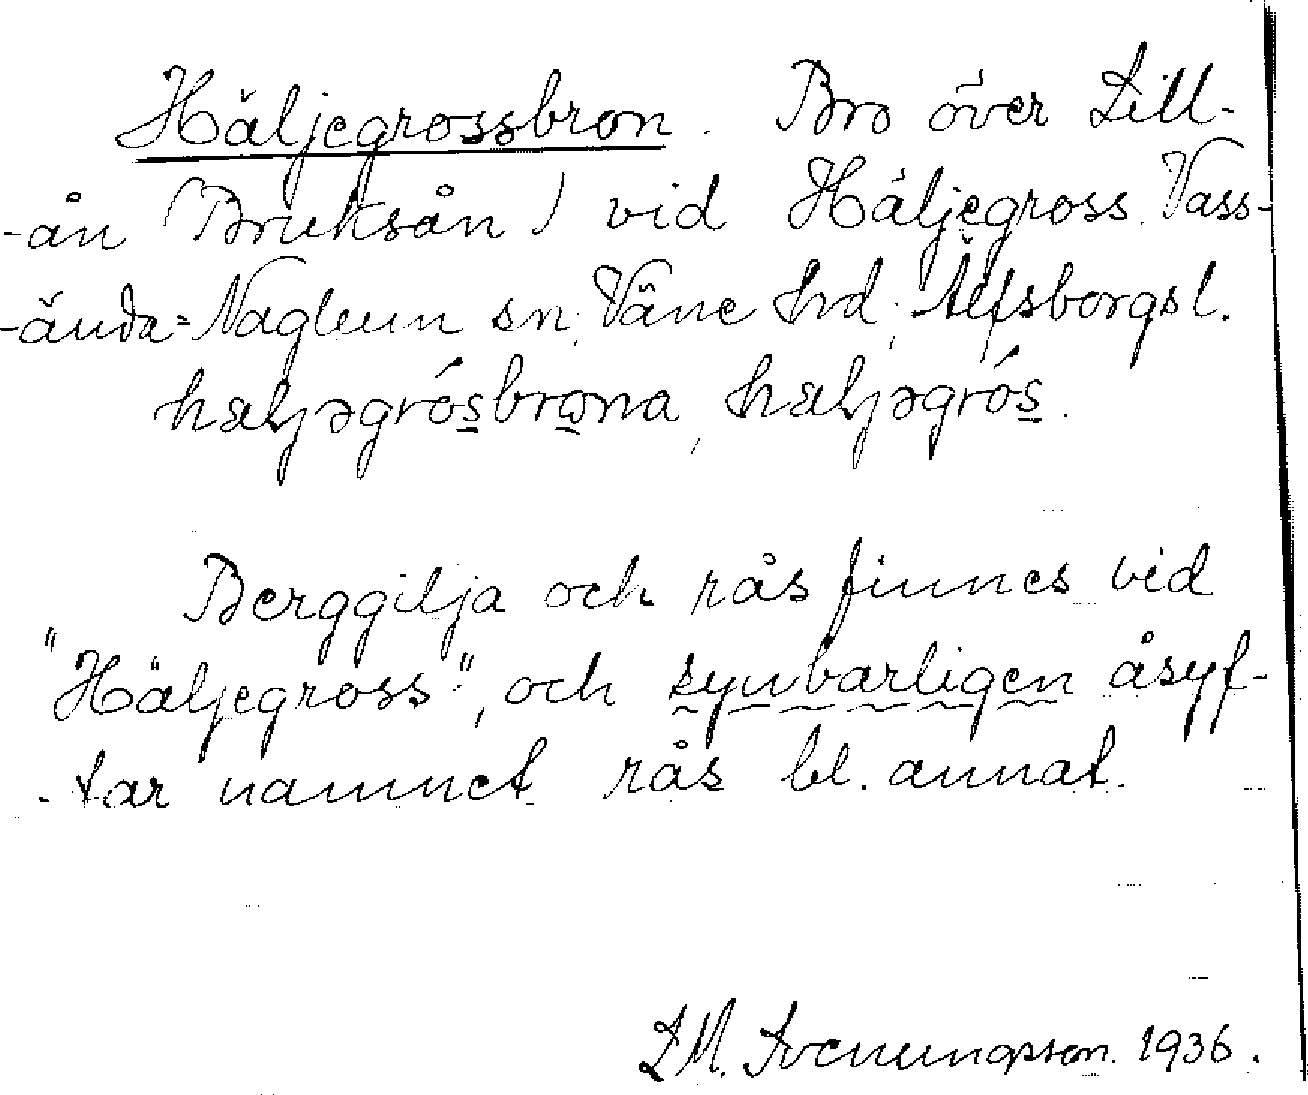 Häljegrossbron. Bro över Lill-
-ån (Bruksån) vid Häljegross. Vass-
-ända-Naglum sn, Väne hd, Älfsborgs l.
hæljəgrósbrωna, hæljəgrós.
Berggilja och rås finnes vid
"Häljegross", och synbarligen åsyf-
-tar namnet rås bl. annat.
L M. Svenungsson. 1936.